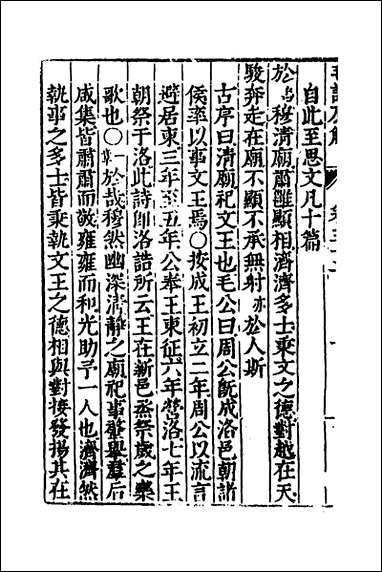 自此至思文凡十篇
於烏穆淸廟肅雝顯相濟濟多士秉文之德對越在天
駿奔走在廟不顯不承無射亦於人斯
古序曰淸廟祀文王也毛公曰周公旣成洛邑朝諸
侯率以事文王焉〇按成王初立二年周公以流言
避居東三年至五年公奉王東征六年營洛七年王
朝祭于洛此詩卽洛誥所云王在新邑烝祭歲之樂
歌也〇章一於哉穆然幽深淸靜之廟祀事肇舉羣后
咸集皆肅肅而敬雍雍而和光助予一人也濟濟然
執事之多士皆秉執文王之德相與對接發揚其在